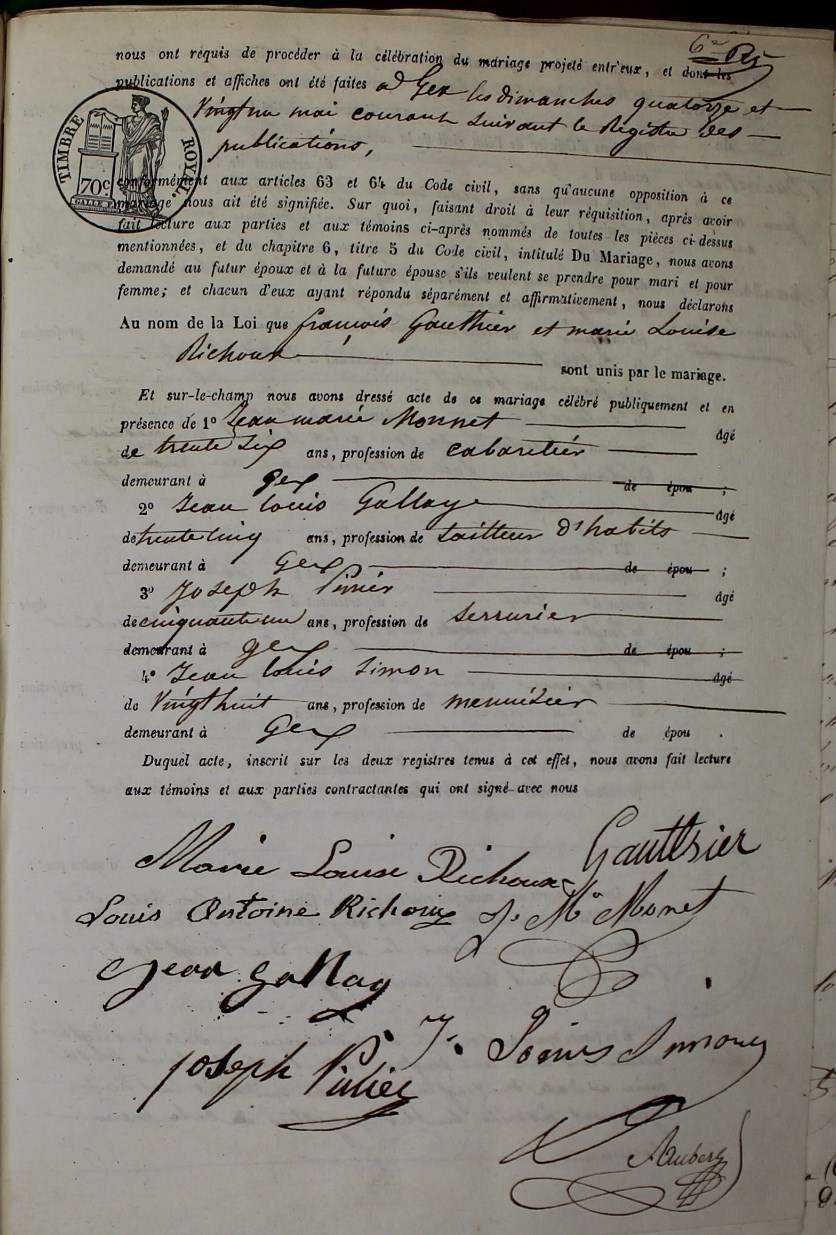 6e
nous ont requis de procéder à la célébration du mariage projeté entr'eux, et dont les
publications et affiches ont été faites à Gex les dimanches quatorze et
Vingt un mai courant suivant le Registre des
publications,
TIMBRE ROYAL.
70c
conformément aux articles 63 et 64 du Code civil, sans qu'aucune opposition à ce
mariage nous ait été signifiée. Sur quoi, faisant droit à leur réquisition, après avoir
fait lecture aux parties et aux témoins ci-après nommés de toutes les pièces ci-dessus
mentionnées, et du chapitre 6, titre 5 du Code civil, intitulé Du Mariage, nous avons
demandé au futur époux et à la future épouse s'ils veulent se prendre pour mari et pour
femme; et chacun d'eux ayant répondu séparément et affirmativement, nous déclarons
Au nom de la Loi que françois Gauthier et marie Louise
Richoux sont unis par le mariage.
Et sur-le-champ nous avons dressé acte de ce mariage célébré publiquement et en
présence de 1o Jean marie Monnet âgé
de trente six ans, profession de cabaretier
demeurant à gex de épou ;
2o Jean Louis Gallay âgé
de trente cinq ans, profession de tailleur d'habits
demeurant à Gex de épou ;
3o Joseph âgé
de cinquante un ans, profession de serrurier
demeurant à gex de épou ;
4o Jean Louis Simon âgé
de Vingt huit ans, profession de menuisier
demeurant à Gex de épou .
Duquel acte, inscrit sur les deux registres tenus à cet effet, nous avons fait lecture
aux témoins et aux parties contractantes qui ont signé avec nous
Marie Louise Richoux Gautthier
Louis Antoine Richoux J. M. Monet
Jean Gallay
J. Louis Simon
Joseph
Aubert